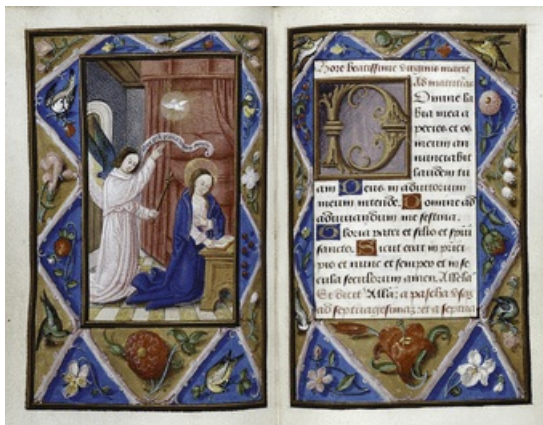 Hore beatissime virginis marie
ad matutinas
Domine la
bia mea a
peries et os
meum an
nunciabit
laudem tu
am Deus in adiutorium
meum intende. Domine ad
adiuvandum me festina.
Gloria patri et filio et spiri
sancto. Sicut erat in princi
pio et nunc et semper et in se
cula seculorum amen. Alleluia
Alla: a pascha
ad septuagesimam: et a septua